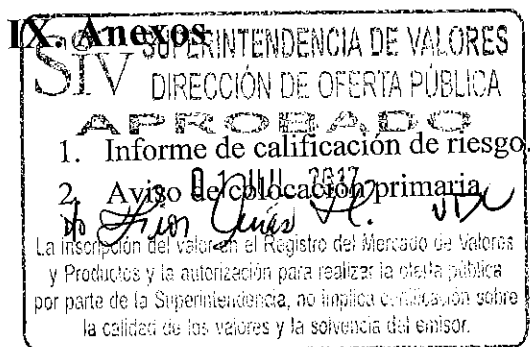 IX. Anexos
SIV SUPERINTENDENCIA DE VALORES
DIRECCIÓN DE OFERTA PÚBLICA
APROBADO
1. Informe de calificación de riesgo.
2. Aviso de colocación primaria
2017
La inscripción del valor en el Registro del Mercado de Valores
y Productos y la autorización para realizar la oferta pública
por parte de la Superintendencia, no implica certificación sobre
la calidad de los valores y la solvencia del emisor.